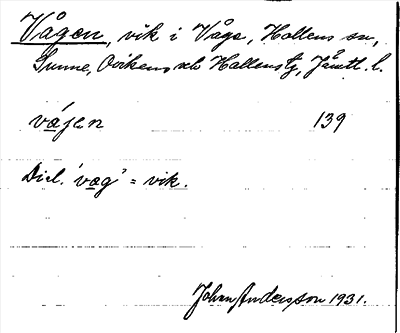 Vågen, vik i Våge, Hallens sn,
Sunne, Ovikens och Hallens tg, Jämtl. l.
vájen 139
Dial. 'væg' = vik.
Johan Andersson 1931.